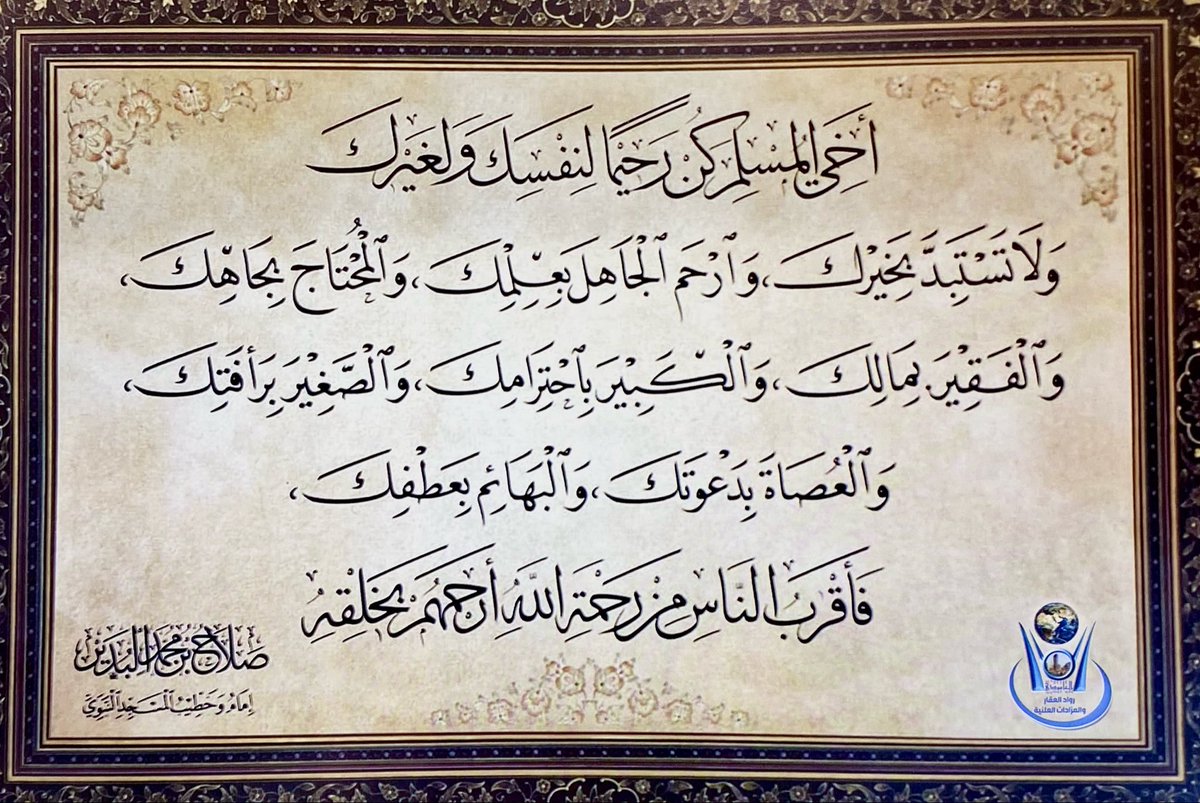 أَخِي المُسْلِم كُن رَحِيمًا لِنَفْسِكَ وَلِغَيْرِكَ
وَلَا تَسْتَبِدَّ بِخَيْرِكَ، وَٱرْحَمِ ٱلْجَاهِلَ بِعِلْمِكَ، وَٱلْمُحْتَاجَ بِجَاهِكَ،
وَٱلْفَقِيْرَ بِمَالِكَ، وَٱلْكَبِيْرَ بِٱحْتِرَامِكَ، وَٱلْصَّغِيْرَ بِرَأفَتِكَ،
وَٱلْعُصَاةَ بِدَعْوَتَكَ، وَٱلْبَهَائِمِ بِعَطْفِكَ،
فَأَقْرَبُ النَّاسِ مِنْ رَحْمَةِ اللَّهِ أَرْحَمُهُمْ بِخَلْقِهِ
صَلَاح بن مُحَمَّد البُدَيْر
إِمَامُ وَخَطِيْبُ ٱلْمَسْجِدِ ٱلْنَّبَوِيّ
رواد العقار
والمزادات العلنية